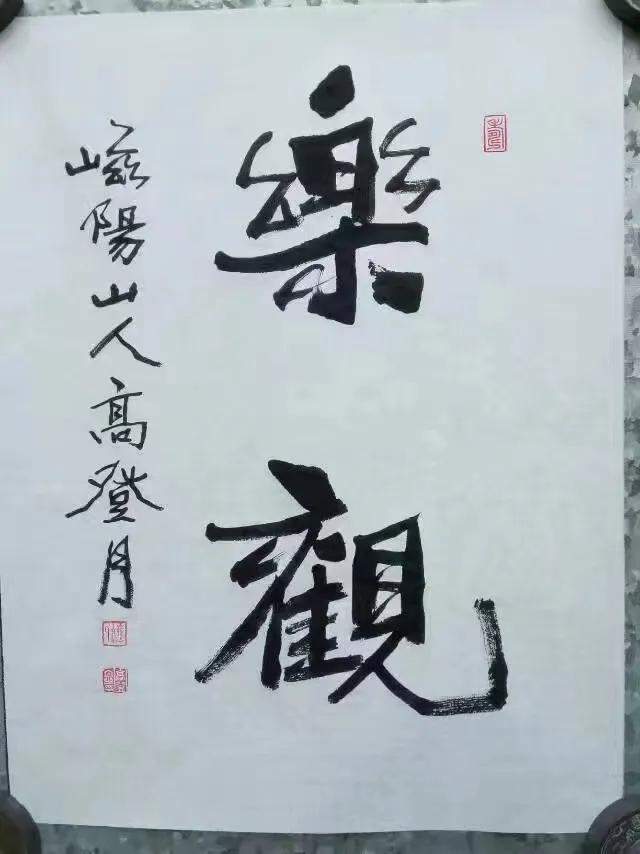 樂觀
嵫陽山人高登月